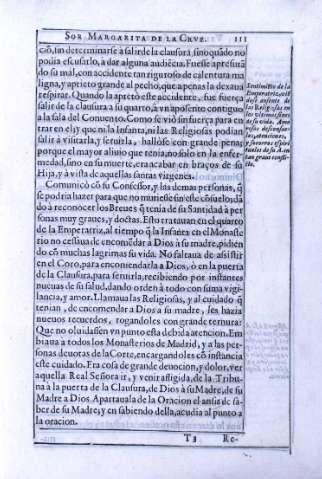 SOR MARGARITA DE LA CRVZ. 111
ciõ, sin determinarse a salir de la clausura, sino quãdo no
podia escusarlo, à dar alguna audiẽcia. Fuese apresurã
do su mal, con accidente tan riguroso de calentura ma
ligna, y aprieto grande al pecho, que apenas la dexaua
respirar. Quando la apretò este accidente, fue fuerça
salir de la clausura à su quarto, à vn aposento contiguo
a la sala del Conuento. Como se viò sin fuerça para en
trar en el, y que ni la Infanta, ni las Religiosas podian
salir à visitarla, y seruirla, hallòse con grande pena;
porque el mayor aliuio que tenia, no solo en la enfer-
medad, sino en su muerte, era acabar en braços de su
Hija, y à vista de aquellas santas virgenes.
Comunicò cõ su Confessor, y las demas personas, q̃
se podria hazer para que no muriesse sin este cõsuelo:
dà à reconocer los Breues q̃ tenia de su Santidad à per
sonas muy graues, y doctas. Esto tratauan en el quarto
de la Emperatriz, al tiempo q̃ la Infanta en el Monaste
rio no cessaua de encomẽdar à Dios à su madre, pidien
do cõ muchas lagrimas su vida. No faltaua de assistir
en el Coro, para encomendarla a Dios, ò en la puerta
de la Clausura, para seruirla, recibiendo por instantes
nueuas de su salud, dando orden à todo con suma vigi
lancia, y amor. Llamaua las Religiosas, y al cuidado q̃
tenian, de encomendar a Dios a su madre, les hazia
nueuos recuerdos, rogandoles con grande ternura:
Que no oluidassen vn punto esta debida atencion. Em
biaua à todos los Monasterios de Madrid, y a las per
sonas deuotas de la Corte, encargandoles cõ instancia
este cuidado. Era cosa de grande deuocion, y dolor, ver
aquella Real Señora ir, y venir afligida, de la Tribu-
na à la puerta de la Clausura, de Dios à su Madre, de su
Madre a Dios. Apartauala de la Oracion el ansia de sa
ber de su Madre, y en sabiendo della, acudia al punto a
la oracion.
T3 Re-
Sentimiẽto de la
Emperatriz,